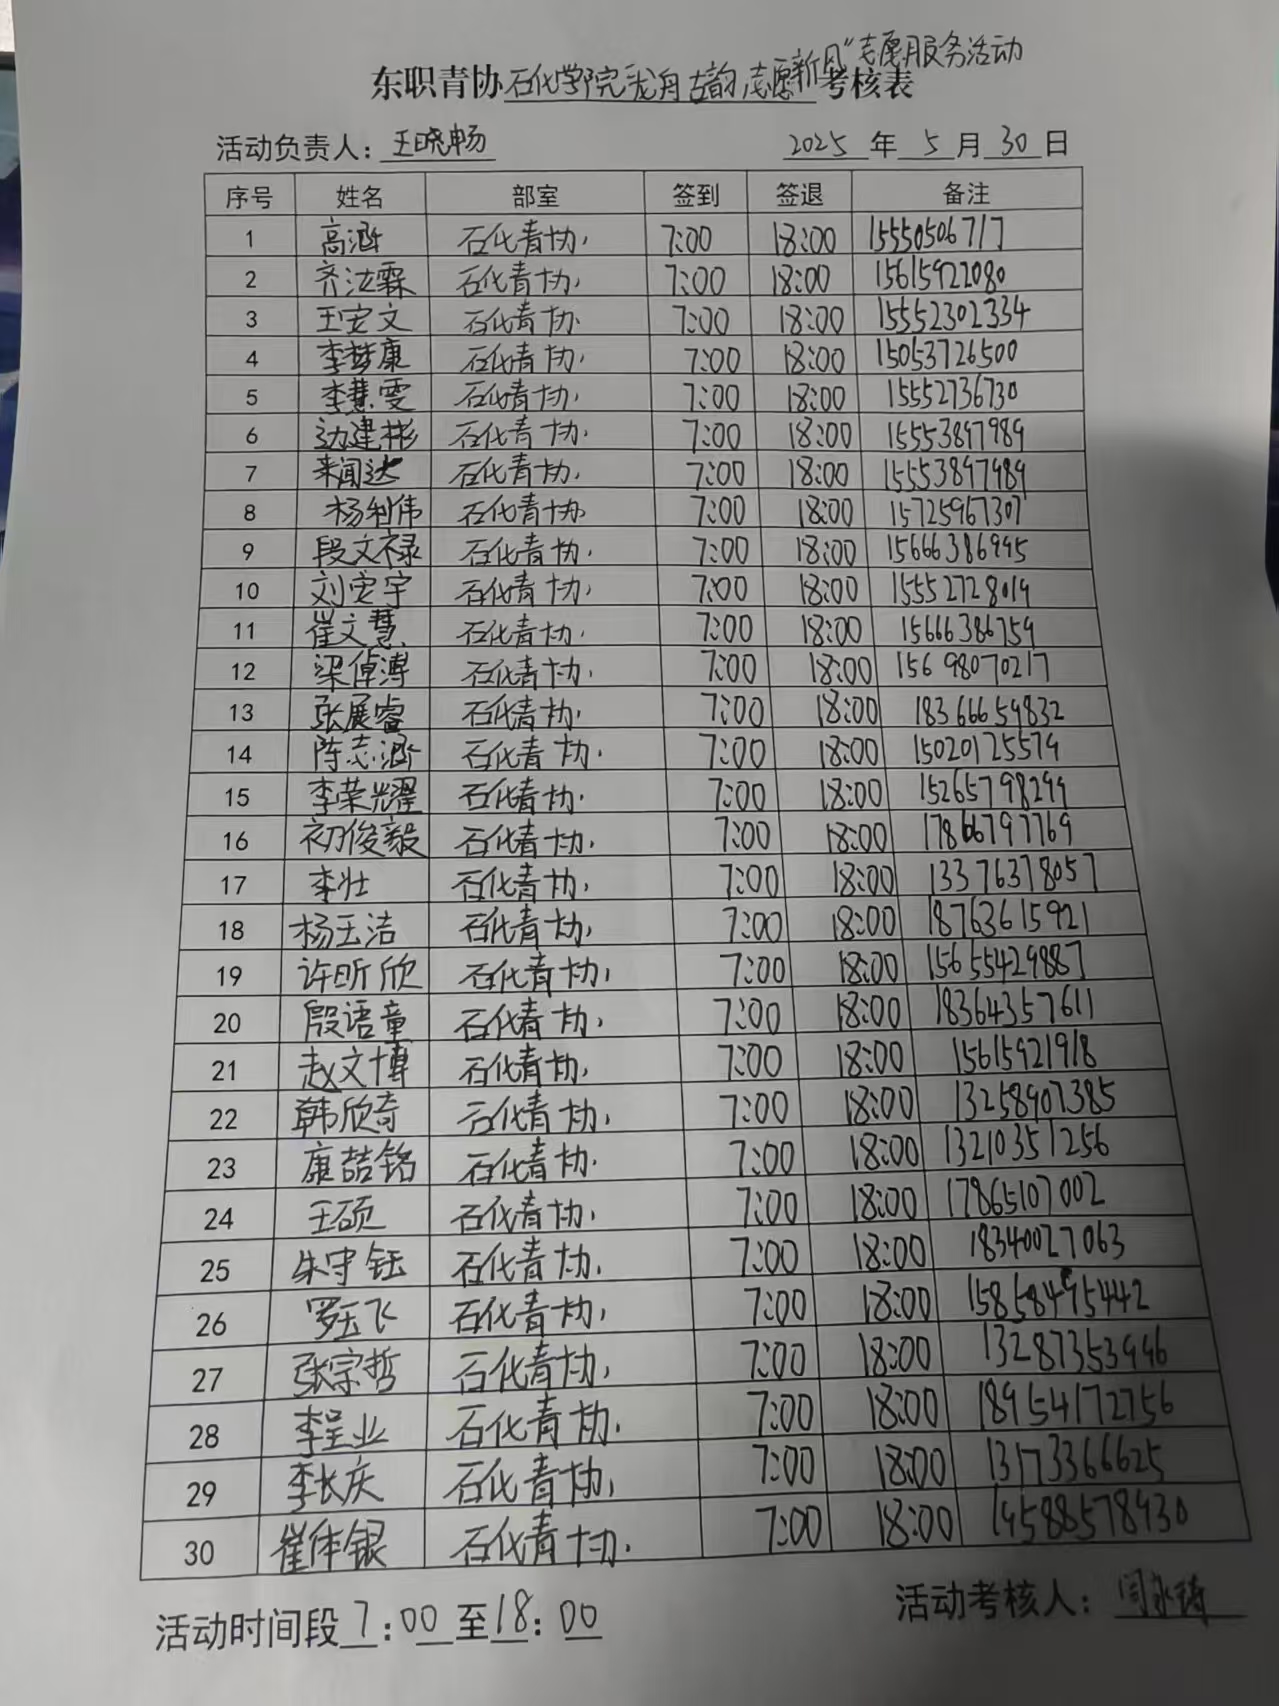 东职青协石化学院“龙舟古韵,志愿新风”志愿服务活动考核表
活动负责人：王晓畅 2025年5月30日
序号 姓名 部室 签到 签退 备注
1 高涵 石化青协. 7:00 18:00 15550506717
2 齐泫霖 石化青协. 7:00 18:00 15615922080
3 王宏文 石化青协. 7:00 18:00 15552302334
4 李梦康 石化青协. 7:00 18:00 15053726500
5 李慧雯 石化青协. 7:00 18:00 15552736730
6 边建彬 石化青协. 7:00 18:00 15553897989
7 来闻达 石化青协. 7:00 18:00 15553897989
8 杨利伟 石化青协 7:00 18:00 15725967307
9 段文禄 石化青协. 7:00 18:00 15666386995
10 刘宏宇 石化青协. 7:00 18:00 15552728019
11 崔文慧 石化青协. 7:00 18:00 15666386759
12 梁倬溥 石化青协. 7:00 18:00 15698070217
13 张展睿 石化青协. 7:00 18:00 18366659832
14 陈志涵 石化青协. 7:00 18:00 15020125579
15 李荣耀 石化青协. 7:00 18:00 15265798299
16 初俊毅 石化青协. 7:00 18:00 17866797769
17 李壮 石化青协. 7:00 18:00 13376378057
18 杨玉洁 石化青协. 7:00 18:00 18763615921
19 许昕欣 石化青协. 7:00 18:00 15655429887
20 殷语童 石化青协. 7:00 18:00 18364357611
21 赵文博 石化青协. 7:00 18:00 15615921918
22 韩欣奇 石化青协. 7:00 18:00 13258907385
23 康喆铭 石化青协. 7:00 18:00 13210351256
24 王硕 石化青协. 7:00 18:00 17865107002
25 朱守钰 石化青协. 7:00 18:00 18340027063
26 罗玉飞 石化青协. 7:00 18:00 15858495442
27 张宗哲 石化青协. 7:00 18:00 13287353946
28 李呈业 石化青协. 7:00 18:00 18954172756
29 李长庆 石化青协. 7:00 18:00 13173366625
30 崔体银 石化青协. 7:00 18:00 19588578930
活动时间段7:00至18:00 活动考核人：闫永